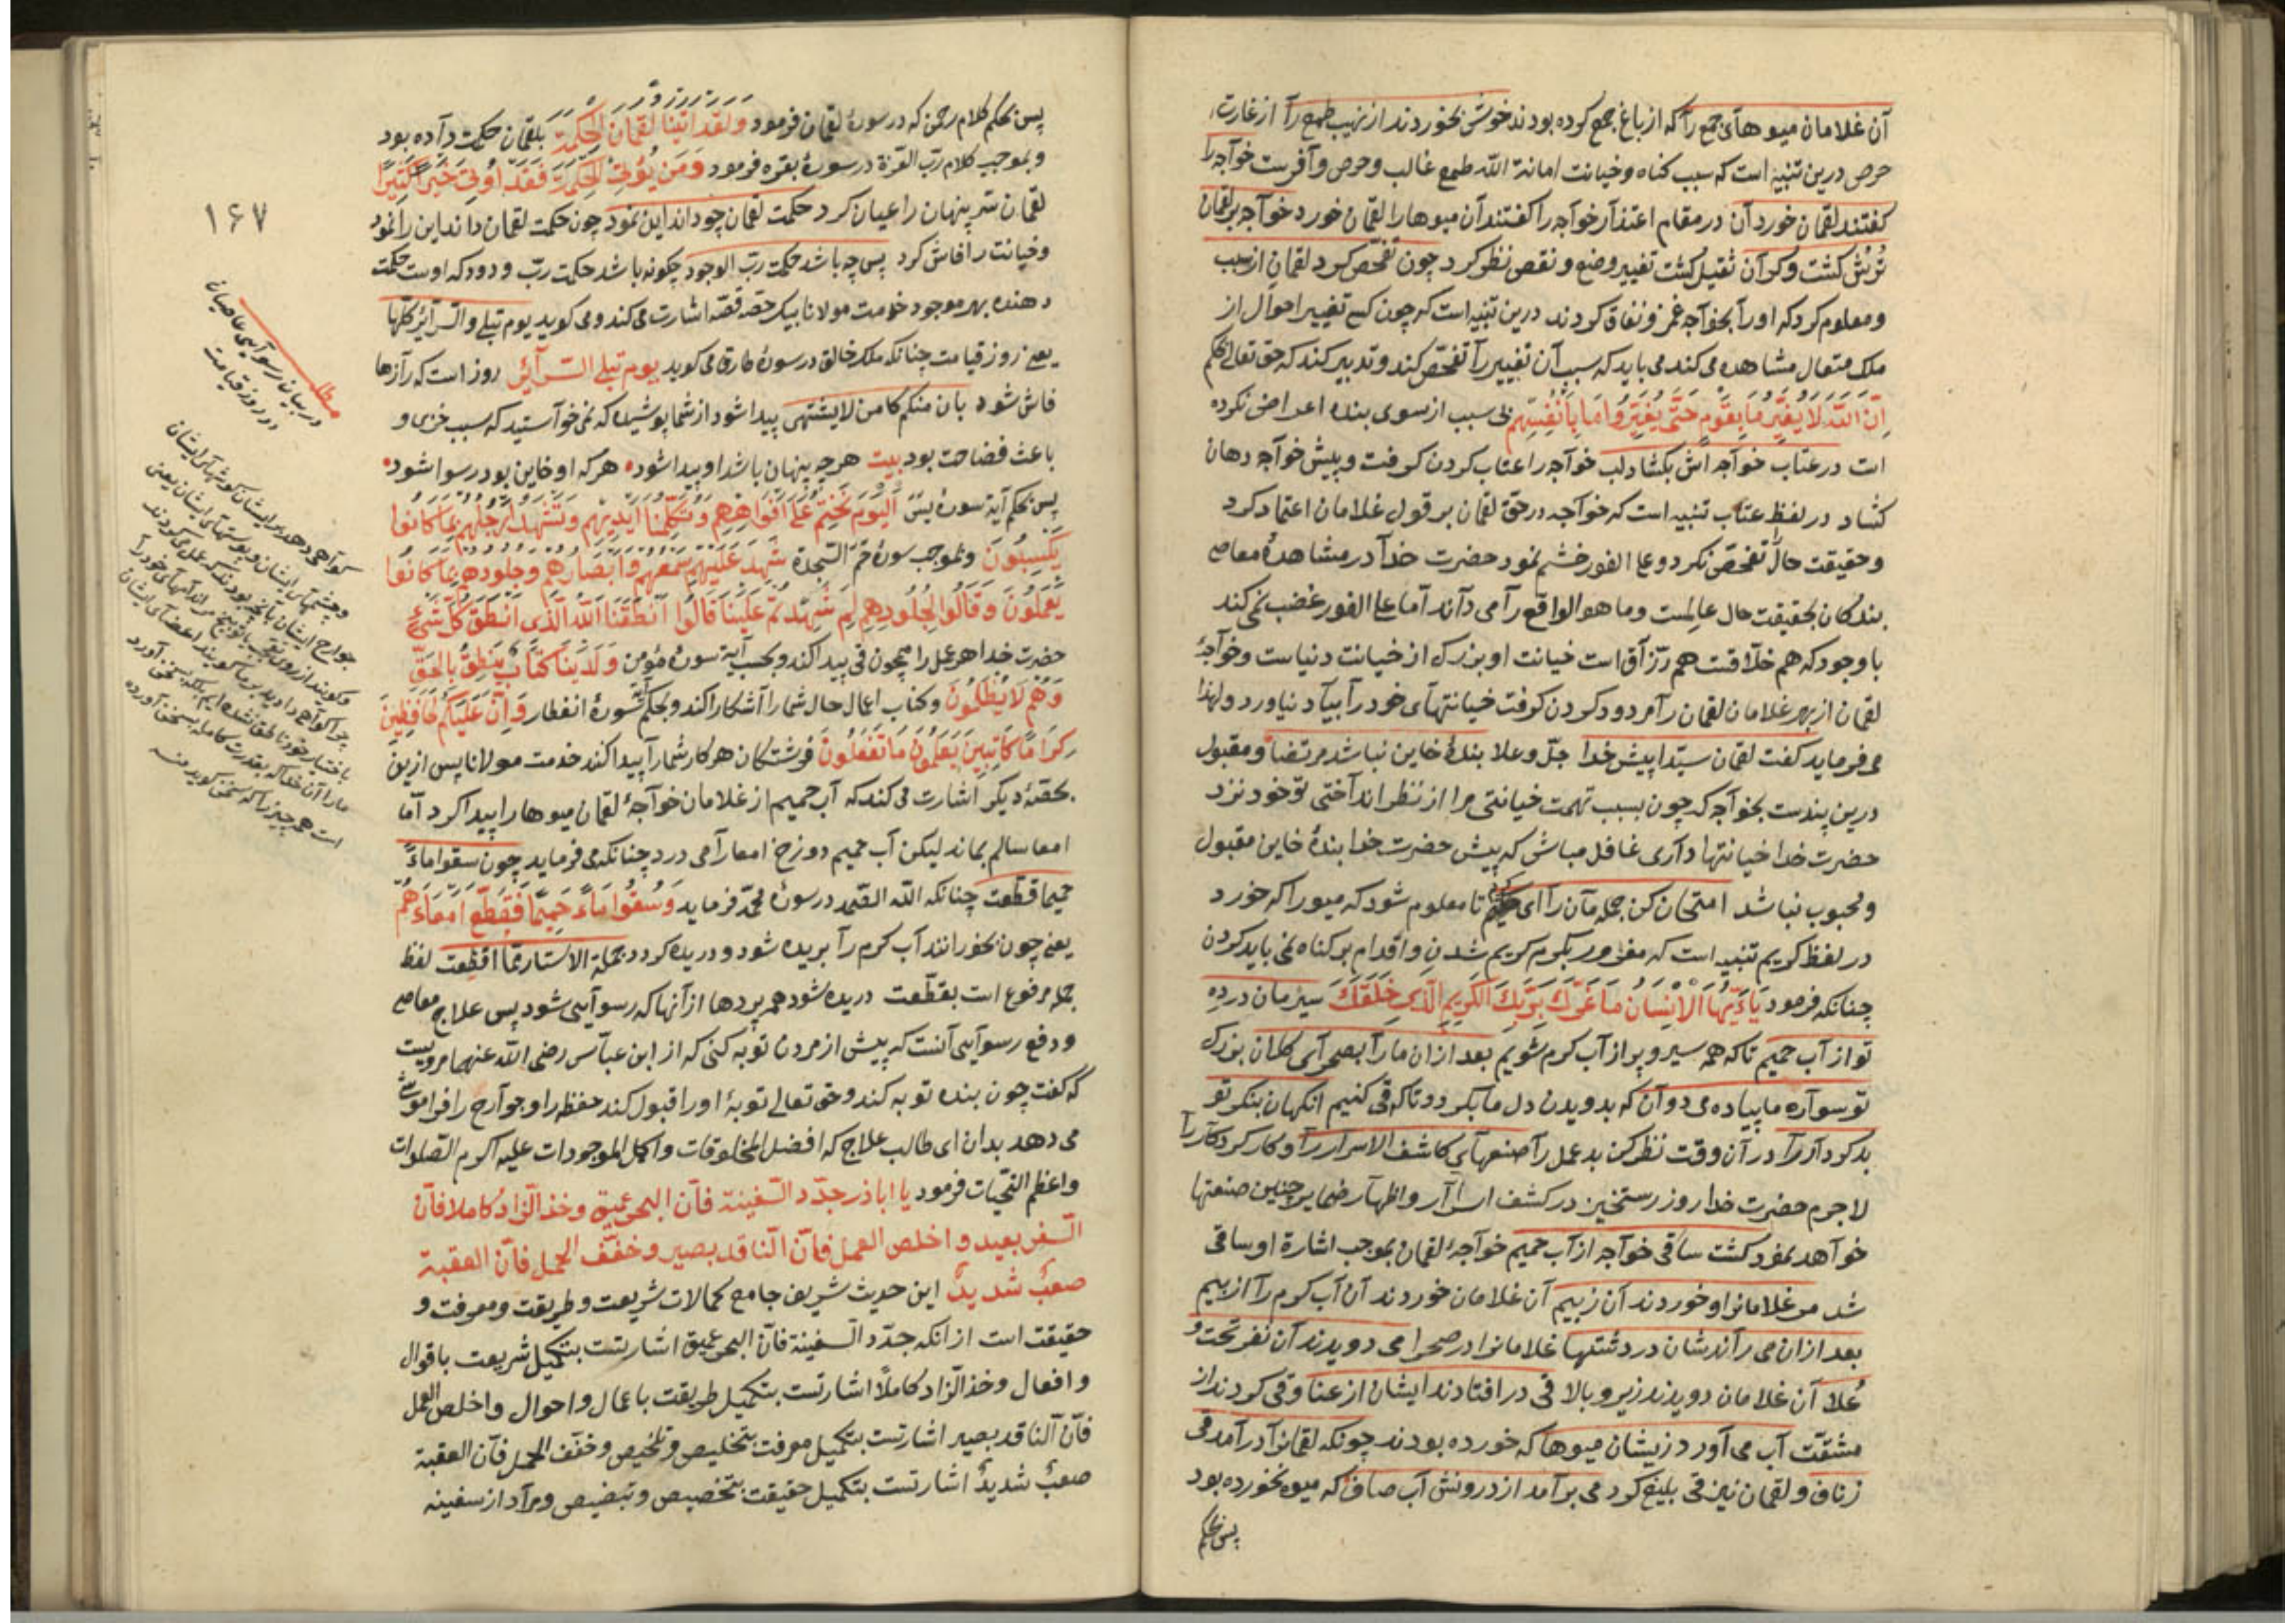 آن غلامان میوهای جمع را که از باغ جمع کرده بودند خوش بخوردند از نهیب طمع را از غارت
حرص درین تنبیه است که سبب کناه و خیانت امانة الله طمع غالب و حرص وآفرست خواجه را
کفتند لقمان خورد آن در مقام اعتذار خواجه را کفتند آن میوها را لقمان خورد خواجه بر لقمان
ترش کشت و کران ثقیل کشت تغییر وضع و نقص نظر کرد چون تفحص کرد لقمان از سبب
و معلوم کرد که او را بخواجه غمز و نفاق کردند درین تنبیه است که چون کسی تغییر احوال از
ملک متعال مشاهده می کند می باید که سبب آن تغییر را تفحص کند و تدبیر کند که حق تعالی بحکم
اِنَّ اللّٰهَ لَا يُغَيِّرُ مَا بِقَوْمٍ حَتّٰى يُغَيِّرُوا مَا بِاَنْفُسِهِمْ بی سبب از سوی بنده اعراض نکرده
است در عتاب خواجه اش بکشاد لب خواجه را عتاب کردن کرفت و پیش خواجه دهان
کشاد در لفظ عتاب تنبیه است که خواجه در حق لقمان بر قول غلامان اعتماد کرد
و حقیقت حال تفحص نکرد و علی الفور خشم نمود حضرت خدا در مشاهدهٔ معاصی
بندکان بحقیقت حال عالمست و ما هو الواقع را می داند اما علی الفور غضب نمی کند
با وجود که هم خلاقست هم رزاق است خیانت او بزرک از خیانت دنیاست و خواجهٔ
لقمان از بهر غلامان لقمان را مردود کردن کرفت خیانتهای خود را بیاد نیاورد و لهذا
می فرماید کفت لقمان سیدا پیش خدا جل و علا بندهٔ خاین نباشد مرتضا و مقبول
درین پندست بخواجه که چون بسبب تهمت خیانتی مرا از نظر انداختی تو خود نزد
حضرت خدا خیانتها داری غافل مباش که پیش حضرت خدا بندهٔ خاین مقبول
و محبوب نباشد امتحان کن جمله مان را ای کریم تا معلوم شود که میورا که خورد
در لفظ کریم تنبیه است که مغرور بکرم کریم شدن و اقدام بر کناه نمی باید کردن
چنانکه فرمود يَا اَيُّهَا الْاِنْسَانُ مَا غَرَّكَ بِرَبِّكَ الْكَرِيمِ الَّذِي خَلَقَكَ سیرمان در ده
تو از آب حمیم تا که همه سیر و پر از آب کرم شویم بعد ازان مارا بصحرای کلان بزرک
تو سواره ما پیاده می دوان که بدویدن دل ما بکردد تا که قی کنیم انکهان بنکر تو
بدکردار را در آن وقت نظر کن بدعمل را صنعهای کاشف الاسرار را و کار کردکار را
لاجرم حضرت خدا روز رستخیز در کشف اسرار و اظهار ضمایر چنین صنعتها
خواهد نمود کشت ساقی خواجه از آب حمیم خواجهٔ لقمان بموجب اشارة او ساقی
شد مر غلامانرا و خوردند آن زبیم آن غلامان خوردند آن آب کرم را از بیم
بعد ازان می راندشان در دشتها غلامانرا در صحرا می دویدند آن نفر تحت و
علا آن غلامان دویدند زیر و بالا قی در افتادند ایشان از عنا و قی کردند از
مشقت آب می آورد زیشان میوها که خورده بودند چونکه لقمانرا در آمد قی
زناف و لقمان نیز قی بلیغ کرد می برآمد از درونش آب صاف که میوه نخورده بود
پس بحکم
پس بحکم کلام رحمن که در سورهٔ لقمان فرمود وَلَقَدْ اٰتَيْنَا لُقْمَانَ الْحِكْمَةَ بلقمان حکمت داده بود
و بموجب کلام رب العزة در سورهٔ بقره فرمود وَمَنْ يُؤْتَ الْحِكْمَةَ فَقَدْ اُوتِيَ خَيْرًا كَثِيرًا
لقمان سر پنهان را عیان کرد حکمت لقمان چو داند این نمود چون حکمت لقمان داند این را نمود
و خیانت را فاش کرد پس چه باشد حکمت رب الوجود چکونه باشد حکمت رب ودود که اوست حکمت
دهنده بهر موجود خدمت مولانا بیک حصه قصه اشارت می کند و می کوید یوم تبلی والسرائر کلها
یعنی روز قیامت چنانکه ملک خالق در سورهٔ طارق می کوید يوم تبلى السرائر روز است که رازها
فاش شود بان منکم کامن لا یشتهی پیدا شود از شما پوشیده که نمی خواستید که سبب خزی و
باعث فضاحت بود بیت هر چه پنهان باشد او پیدا شود هر که او خاین بود رسوا شود
پس بحکم آیة سورهٔ یس اَلْيَوْمَ نَخْتِمُ عَلٰى اَفْوَاهِهِمْ وَتُكَلِّمُنَا اَيْدِيهِمْ وَتَشْهَدُ اَرْجُلُهُمْ بِمَا كَانُوا
يَكْسِبُونَ و بموجب سورهٔ حم السجدة شَهِدَ عَلَيْهِمْ سَمْعُهُمْ وَاَبْصَارُهُمْ وَجُلُودُهُمْ بِمَا كَانُوا
يَعْمَلُونَ وَقَالُوا لِجُلُودِهِمْ لِمَ شَهِدْتُمْ عَلَيْنَا قَالُوا اَنْطَقَنَا اللّٰهُ الَّذِي اَنْطَقَ كُلَّ شَيْءٍ
حضرت خدا هر عمل را همچون قی پیدا کند و بحسب آیة سورهٔ مؤمن وَلَدَيْنَا كِتَابٌ يَنْطِقُ بِالْحَقِّ
وَهُمْ لَا يُظْلَمُونَ و کتاب اعمال حال شما را آشکارا کند و بحکم آیة سورهٔ انفطار وَاِنَّ عَلَيْكُمْ لَحَافِظِينَ
كِرَامًا كَاتِبِينَ يَعْلَمُونَ مَا تَفْعَلُونَ فرشتکان هر کار شمارا پیدا کند خدمت مولانا پس ازین
بحصهٔ دیکر اشارت می کند که آب حمیم از غلامان خواجهٔ لقمان میوها را پیدا کرد اما
امعا سالم بماند لیکن آب حمیم دوزخ امعا را می درد چنانکه می فرماید چون سقوا ماءً
حمیما قطعت چنانکه الله الصمد در سورهٔ محمد فرماید وَسُقُوا مَاءً حَمِيمًا فَقَطَّعَ اَمْعَاءَهُمْ
یعنی چون بخورانند آب کرم را بریده شود و دریده کردد جملة الاستار مما افظعت لفظ
جمله مرفوع است بقطعت دریده شود همه پردها از آنها که رسوایی شود پس علاج معاصی
و دفع رسوایی آنست که پیش از مردن توبه کنی که از ابن عباس رضی الله عنهما مرویست
که کفت چون بنده توبه کند و حق تعالی توبهٔ او را قبول کند حفظه را و جوارح را فراموشی
می دهد بدان ای طالب علاج که افضل المخلوقات و اکمل الموجودات علیه اکرم الصلوات
و اعظم التحیات فرمود یا اباذر جدد السفینة فان البحر عمیق وخذ الزاد کاملا فان
السفر بعید و اخلص العمل فان الناقد بصیر وخفف الحمل فان العقبة
صعبٌ شدیدٌ این حدیث شریف جامع کمالات شریعت و طریقت و معرفت و
حقیقت است از انکه جدد السفینة فان البحر عمیق اشارتست بتکمیل شریعت باقوال
و افعال وخذ الزاد کاملًا اشارتست بتکمیل طریقت باعمال و احوال و اخلص العمل
فان الناقد بصیر اشارتست بتکمیل معرفت بتخلیص و تمحیص وخفف الحمل فان العقبة
صعبٌ شدیدٌ اشارتست بتکمیل حقیقت بتخصیص و مراد از سفینه
۱۶۷
مطلب
در بیان رسوایی عاصیان
در روز قیامت
کواهی دهد بر ایشان کوشهای ایشان
و چشمهای ایشان و پوستهای ایشان یعنی
جوارح ایشان بانچه بودند که عمل می کردند
و کویند از روی توبیخ مر اندامهای خود را
چرا کواهی دادید بر ما کویند اعضای ایشان
باختیار خود ناطق نشده ایم بلکه بسخن آورد
مارا آن خدا که بقدرت کامله بسخن آورده
است هر چیز را که سخن کوید